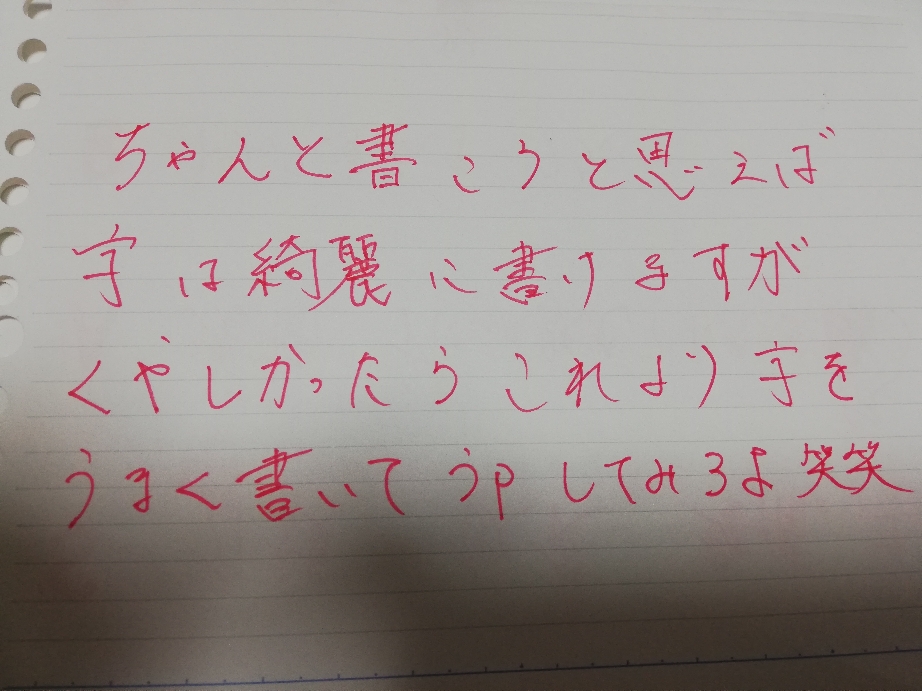 ちゃんと書こうと思えば
字は綺麗に書けますが
くやしかったらこれより字を
うまく書いてうpしてみろよ笑笑